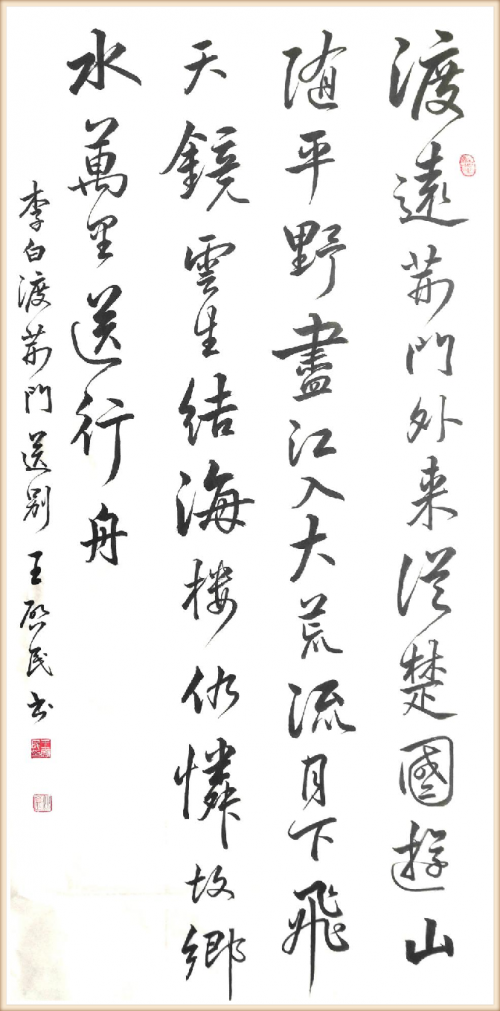 渡遠荊門外来從楚國遊山
随平野盡江入大荒流月下飛
天鏡雲生结海楼仍憐故鄉
水萬里送行舟
李白渡荊門送别王啓民书